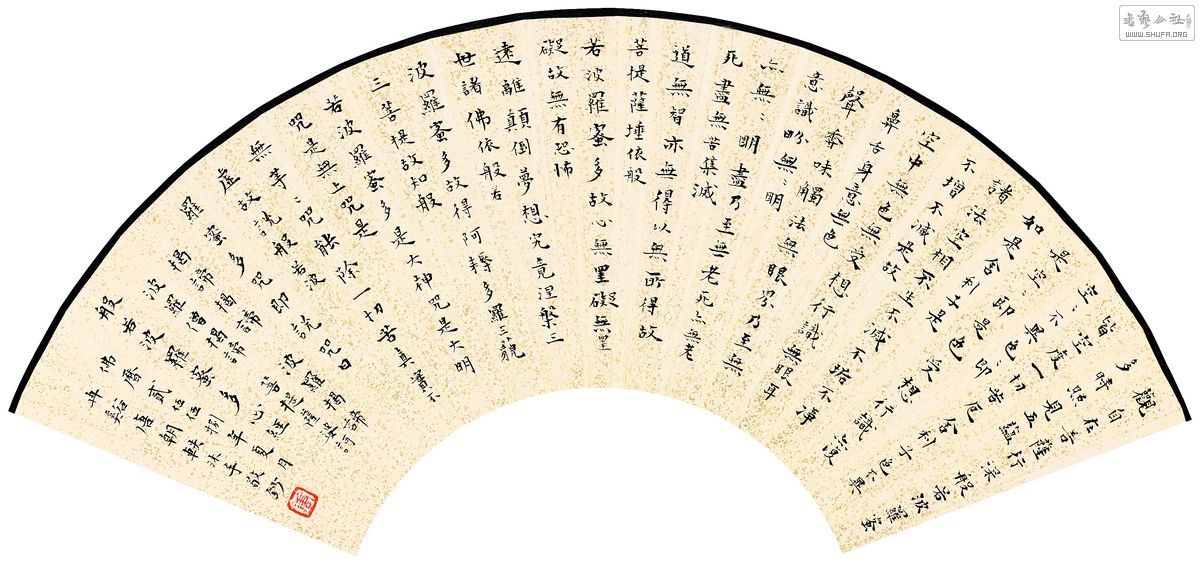 觀自在菩薩行深般若波羅蜜
多時照見五蘊
皆空度一切苦厄舍利子色不異
空〻不異色〻即
是空〻即是色受想行識亦復
如是舍利子是
諸法空相不生不滅不垢不淨
不增不減是故
空中無色無受想行識無眼耳
鼻舌身意無色
聲香味觸法無眼界乃至無
意識界無〻明
亦無〻明盡乃至無老死亦無老
死盡無苦集滅
道無智亦無得以無所得故
菩提薩埵依般
若波羅蜜多故心無罣礙無罣
礙故無有恐怖
遠離顛倒夢想究竟涅槃三
世諸佛依般若
波羅蜜多故得阿耨多羅三藐
三菩提故知般
若波羅蜜多是大神咒是大明
咒是無上咒是
無等〻咒能除一切苦真實不
虛故說般若波
羅蜜多咒即說咒曰
揭諦揭諦波羅揭諦
波羅僧揭諦菩提薩婆訶
般若波羅蜜多心經
佛曆貳伍伍捌年夏月
唐朝軼沐手敬鈔
WWW.SHUFA.ORG